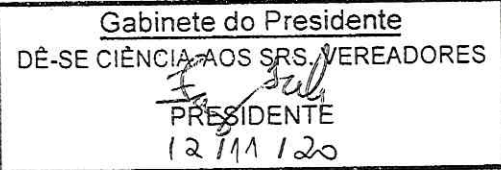 Gabinete do Presidente
DÊ-SE CIÊNCIA AOS SRS. VEREADORES
PRESIDENTE
12/11/20